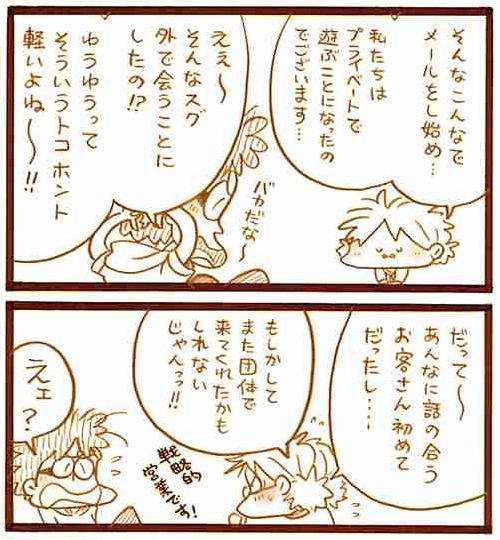 そんなこんなで
メールをし始め…
私たちは
プライベートで
遊ぶことになったの
でございます…
ええ～
そんなスグ
外で会うことに
したの!?
ゆうゆうって
そういうトコホント
軽いよね～～!!
バカだな～
だって～
あんなに話の合う
お客さん初めて
だったし…
もしかして
また団体で
来てくれたかも
しれない
じゃんっっ!!
戦略的
営業です!
えェ
?